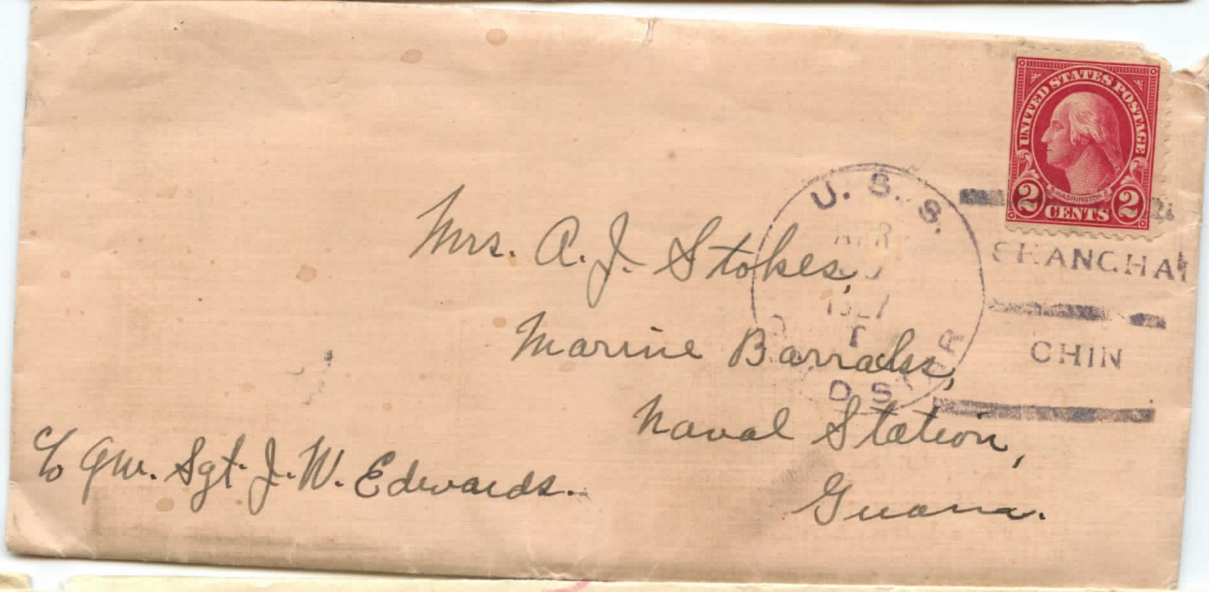 UNITED STATES POSTAGE
WASHINGTON
2 CENTS 2
U. S. S.
APR
1927
SHANGHAI
CHIN
D S
Mrs. A. J. Stokes,
Marine Barracks,
Naval Station,
Guam.
c/o Qm. Sgt. J. W. Edwards.